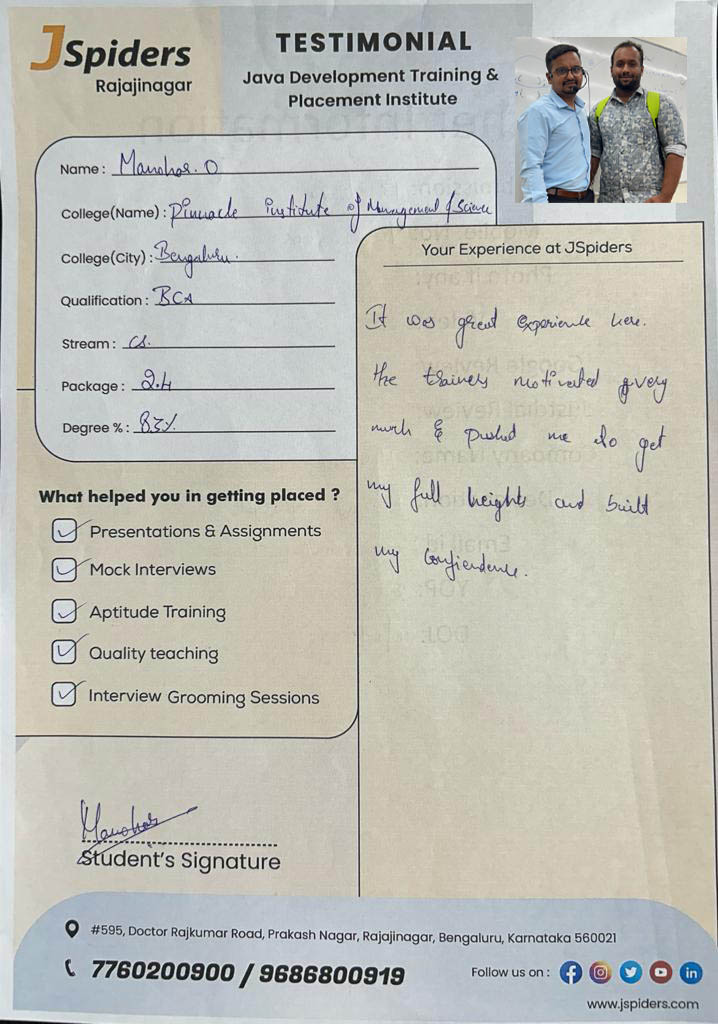 JSpiders
Rajajinagar
TESTIMONIAL
Java Development Training &
Placement Institute
Name : Manohar. O
College(Name) : Pinnacle institute of Management & Science
College(City) : Bengaluru.
Qualification : BCA
Stream : CS.
Package : 2.4
Degree % : 83%
What helped you in getting placed ?
Presentations & Assignments
Mock Interviews
Aptitude Training
Quality teaching
Interview Grooming Sessions
Your Experience at JSpiders
It was great experience here.
the trainers motivated very
much & pushed me to get
my full heights and built
my confiendence.
Manohar
Student's Signature
#595, Doctor Rajkumar Road, Prakash Nagar, Rajajinagar, Bengaluru, Karnataka 560021
7760200900 / 9686800919
Follow us on :
www.jspiders.com